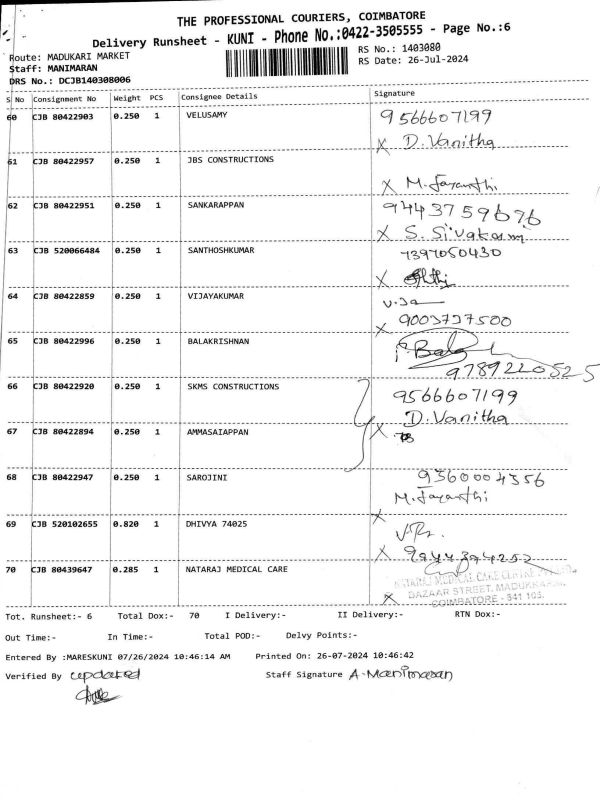 THE PROFESSIONAL COURIERS, COIMBATORE
Delivery Runsheet - KUNI - Phone No.:0422-3505555 - Page No.:6
Route: MADUKARI MARKET
RS No.: 1403080
Staff: MANIMARAN
RS Date: 26-Jul-2024
DRS No.: DCJB140308006
S No Consignment No Weight PCS Consignee Details Signature
60 CJB 80422903 0.250 1 VELUSAMY 9566607199
X D. Vanitha
61 CJB 80422957 0.250 1 JBS CONSTRUCTIONS
X M. Jayanthi
62 CJB 80422951 0.250 1 SANKARAPPAN 9443759676
X S. Sivakami
63 CJB 520066484 0.250 1 SANTHOSHKUMAR 7397050430
X
64 CJB 80422859 0.250 1 VIJAYAKUMAR
X 9003737500
65 CJB 80422996 0.250 1 BALAKRISHNAN
9789220525
66 CJB 80422920 0.250 1 SKMS CONSTRUCTIONS 9566607199
D. Vanitha
67 CJB 80422894 0.250 1 AMMASAIAPPAN X
68 CJB 80422947 0.250 1 SAROJINI 9360004356
M. Jayanthi
X
69 CJB 520102655 0.820 1 DHIVYA 74025
X 9944394252
70 CJB 80439647 0.285 1 NATARAJ MEDICAL CARE
NATARAJ MEDICAL CARE
BAZAAR STREET, MADUKKARAI,
X COIMBATORE - 641 105.
Tot. Runsheet:- 6 Total Dox:- 70 I Delivery:- II Delivery:- RTN Dox:-
Out Time:- In Time:- Total POD:- Delvy Points:-
Entered By :MARESKUNI 07/26/2024 10:46:14 AM Printed On: 26-07-2024 10:46:42
Verified By updated Staff Signature A. Manimaran